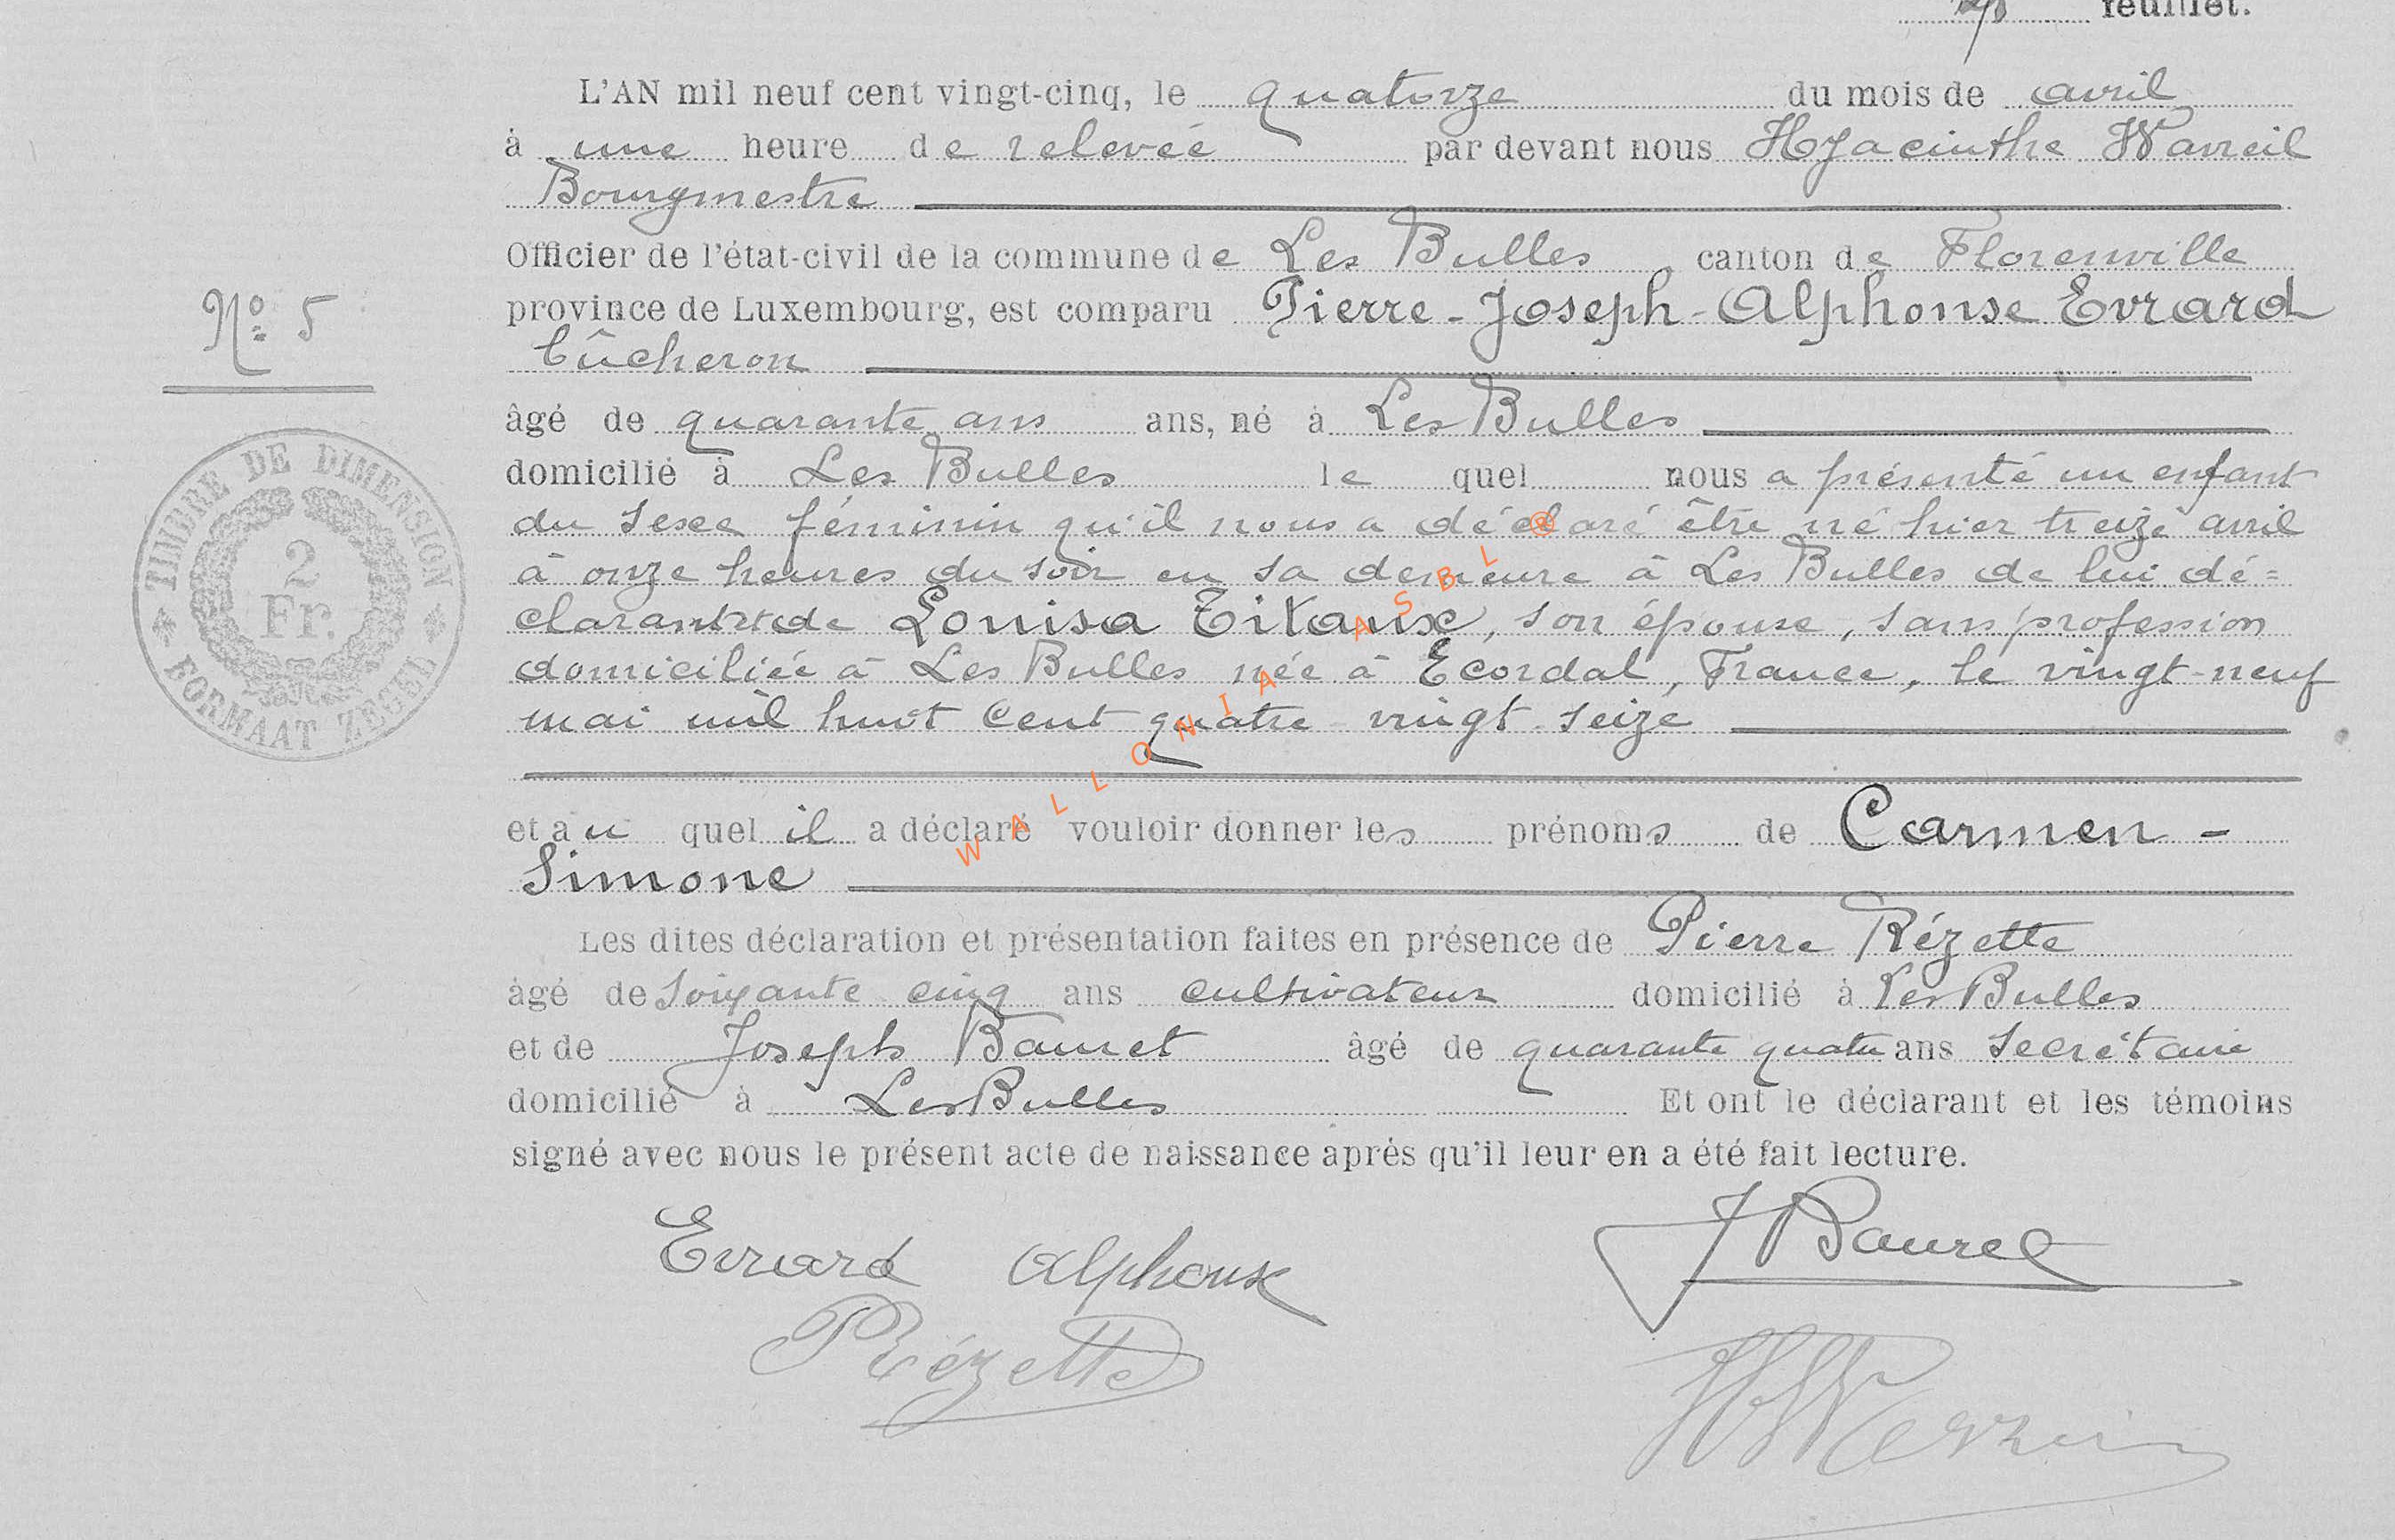 feuillet.
L'AN mil neuf cent vingt-cinq, le quatorze du mois de avril
à une heure de relevée par devant nous Hyacinthe
Bourgmestre
Officier de l'état-civil de la commune de Les Bulles canton de Florenville
N° 5
province de Luxembourg, est comparu Pierre-Joseph-Alphonse Evrard
bûcheron
âgé de quarante ans ans, né à Les Bulles
domicilié à Les Bulles le quel nous a présenté un enfant
du sexe féminin qu'il nous a déclaré être né hier treize avril
à onze heures du soir en sa demeure à Les Bulles de lui dé=
clarant et de Louisa Titaux, son épouse, sans profession
domiciliée à Les Bulles née à Ecordal, France, le vingt-neuf
mai mil huit cent quatre-vingt-seize
TIMBRE DE DIMENSION
2
Fr.
FORMAAT ZEGEL
WALLONIA ASBL ®
et au quel il a déclaré vouloir donner les prénoms de Carmen-
Simone
Les dites déclaration et présentation faites en présence de Pierre Rézette
âgé de soixante cinq ans cultivateur domicilié à Les Bulles
et de Joseph âgé de quarante quatre ans secrétaire
domicilié à Les Bulles Et ont le déclarant et les témoins
signé avec nous le présent acte de naissance après qu'il leur en a été fait lecture.
Evrard Alphonse
Rézette